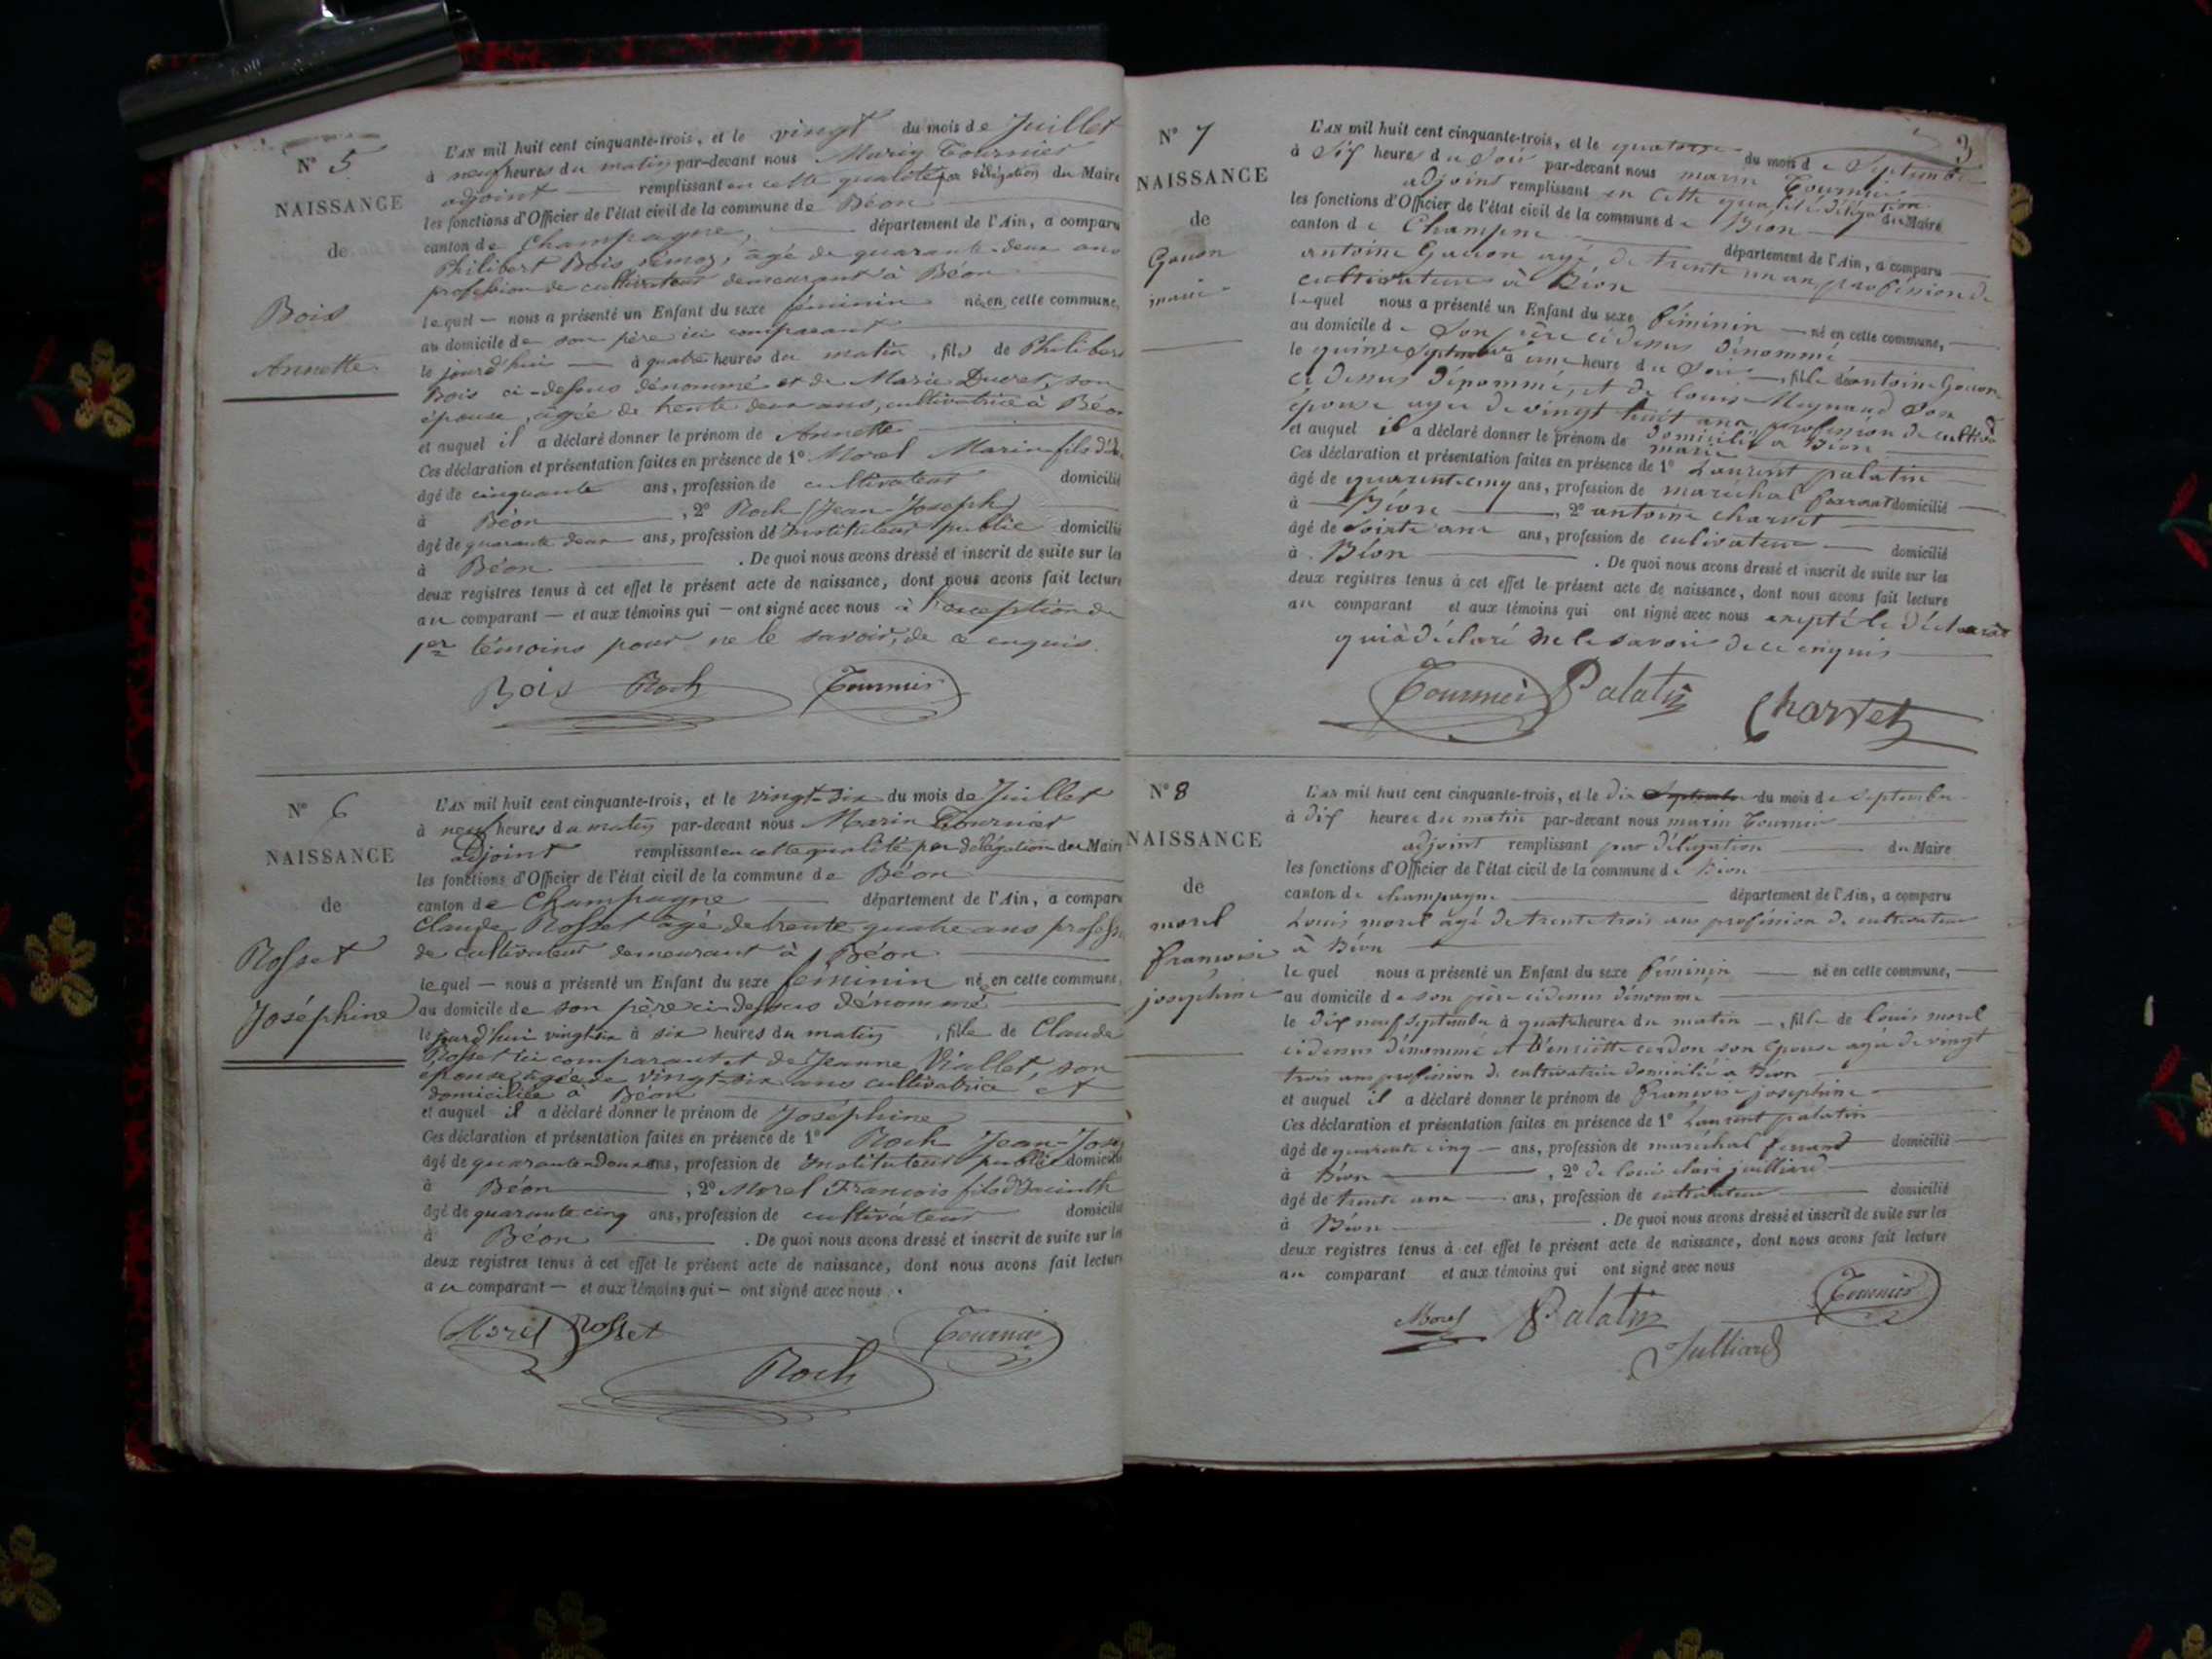 N° 5
NAISSANCE
de
Bois
Annette
L'AN mil huit cent cinquante-trois, et le vingt du mois de Juillet
à neuf heures du matin par-devant nous Marin Tournier
adjoint remplissant en cette qualité par délégation du Maire
les fonctions d'Officier de l'état civil de la commune de Béon
canton de Champagne, département de l'Ain, a comparu
Philibert Bois âgé de quarante-deux ans
profession de cultivateur demeurant à Béon
lequel nous a présenté un Enfant du sexe féminin né en cette commune,
au domicile de son père ici comparant
le jourd'hui à quatre heures du matin, fille de Philibert
Bois ci-dessus dénommé et de Marie Ducret, son
épouse, âgée de trente deux ans, cultivatrice à Béon
et auquel il a déclaré donner le prénom de Annette
Ces déclaration et présentation faites en présence de 1° Morel Marin fils
âgé de cinquante ans, profession de cultivateur domicilié
à Béon, 2° Roch (Jean-Joseph)
âgé de quarante deux ans, profession de Instituteur public domicilié
à Béon. De quoi nous avons dressé et inscrit de suite sur les
deux registres tenus à cet effet le présent acte de naissance, dont nous avons fait lecture
au comparant et aux témoins qui ont signé avec nous à l'exception du
1er témoins pour ne le savoir, de ce enquis.
Bois Roch Tournier
N° 6
NAISSANCE
de
Rosset
Joséphine
L'AN mil huit cent cinquante-trois, et le vingt-six du mois de Juillet
à neuf heures du matin par-devant nous Marin Tournier
adjoint remplissant en cette qualité par délégation du Maire
les fonctions d'Officier de l'état civil de la commune de Béon
canton de Champagne département de l'Ain, a comparu
Claude Rosset âgé de trente quatre ans
de cultivateur demeurant à Béon
lequel nous a présenté un Enfant du sexe féminin né en cette commune,
au domicile de son père ci-dessus dénommé
le jourd'hui vingt six à six heures du matin, fille de Claude
Rosset ici comparant et de Jeanne Viallet, son
épouse, âgée de vingt-six ans cultivatrice et
domiciliée à Béon
et auquel il a déclaré donner le prénom de Joséphine
Ces déclaration et présentation faites en présence de 1° Roch Jean-
âgé de quarante deux ans, profession de Instituteur public domicilié
à Béon, 2° Morel François fils d'Hacinth
âgé de quarante cinq ans, profession de cultivateur domicilié
à Béon. De quoi nous avons dressé et inscrit de suite sur les
deux registres tenus à cet effet le présent acte de naissance, dont nous avons fait lecture
au comparant et aux témoins qui ont signé avec nous.
Morel Rosset Tournier
Roch
3
N° 7
NAISSANCE
de
Gonon
marie
L'AN mil huit cent cinquante-trois, et le quatorze du mois de Septembre
à Six heures du Soir par-devant nous marin Tournier
adjoint remplissant en cette qualité délégation du Maire
les fonctions d'Officier de l'état civil de la commune de Béon
canton de département de l'Ain, a comparu
antoine Gonon agé de trente un an profession de
cultivateur à Béon
lequel nous a présenté un Enfant du sexe féminin né en cette commune,
au domicile de Son père cidenus dénommé
le quinze Septembre à une heure du Soir, fille de antoine Gonon
cidenus dénommé, et de louise Meynaud Son
épouse agée de vingt huit ans, profession de
domiciliée a Béon
et auquel il a déclaré donner le prénom de marie
Ces déclaration et présentation faites en présence de 1° Laurent palatin
âgé de quarente cinq ans, profession de maréchal domicilié
à Béon, 2° antoine charvet
âgé de ans, profession de culivateur domicilié
à Béon. De quoi nous avons dressé et inscrit de suite sur les
deux registres tenus à cet effet le présent acte de naissance, dont nous avons fait lecture
au comparant et aux témoins qui ont signé avec nous excepté le
qui à déclaré ne le savoir de ce enquis
Tournier Palatin Charvet
N° 8
NAISSANCE
de
morel
francoise
josephine
L'AN mil huit cent cinquante-trois, et le dix du mois de Septembre
à dix heures du matin par-devant nous marin Tournier
adjoint remplissant par délégation du Maire
les fonctions d'Officier de l'état civil de la commune de Béon
canton de champagne département de l'Ain, a comparu
Louis morel agé de trente trois ans profession de cultivateur
à Béon
lequel nous a présenté un Enfant du sexe féminin né en cette commune,
au domicile de son père cidenus dénommé
le dix neuf Septembre à quatre heures du matin, fille de louis morel
cidenus dénommé et son épouse agée de vingt
trois ans profession de cultivatrice domiciliée a Béon
et auquel il a déclaré donner le prénom de francoise josephine
Ces déclaration et présentation faites en présence de 1° Laurent palatin
âgé de quarente cinq ans, profession de maréchal ferrant domicilié
à Béon, 2° juilliard
âgé de trente ans, profession de cultivateur domicilié
à Béon. De quoi nous avons dressé et inscrit de suite sur les
deux registres tenus à cet effet le présent acte de naissance, dont nous avons fait lecture
au comparant et aux témoins qui ont signé avec nous
Morel Palatin Tournier
Julliard